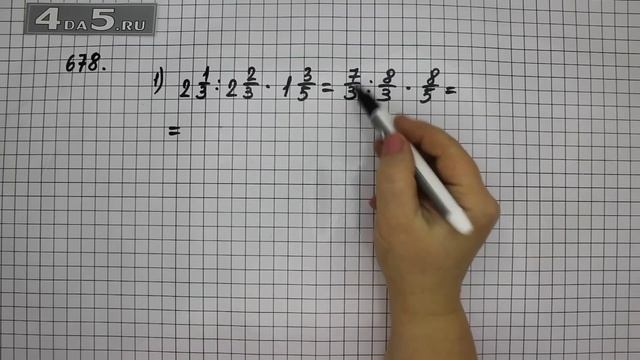 4DA5.RU
678.
1) 2 1/3 : 2 2/3 · 1 3/5 = 7/3 : 8/3 · 8/5 =
=